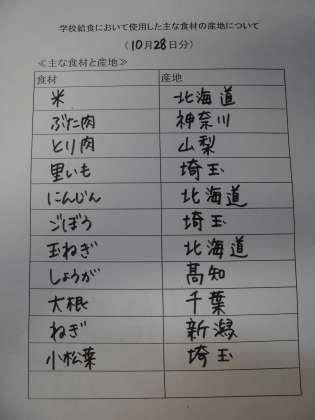 学校給食において使用した主な食材の産地について
(10月28日分)
≪主な食材と産地≫
食材 産地
米 北海道
ぶた肉 神奈川
とり肉 山梨
里いも 埼玉
にんじん 北海道
ごぼう 埼玉
玉ねぎ 北海道
しょうが 高知
大根 千葉
ねぎ 新潟
小松菜 埼玉